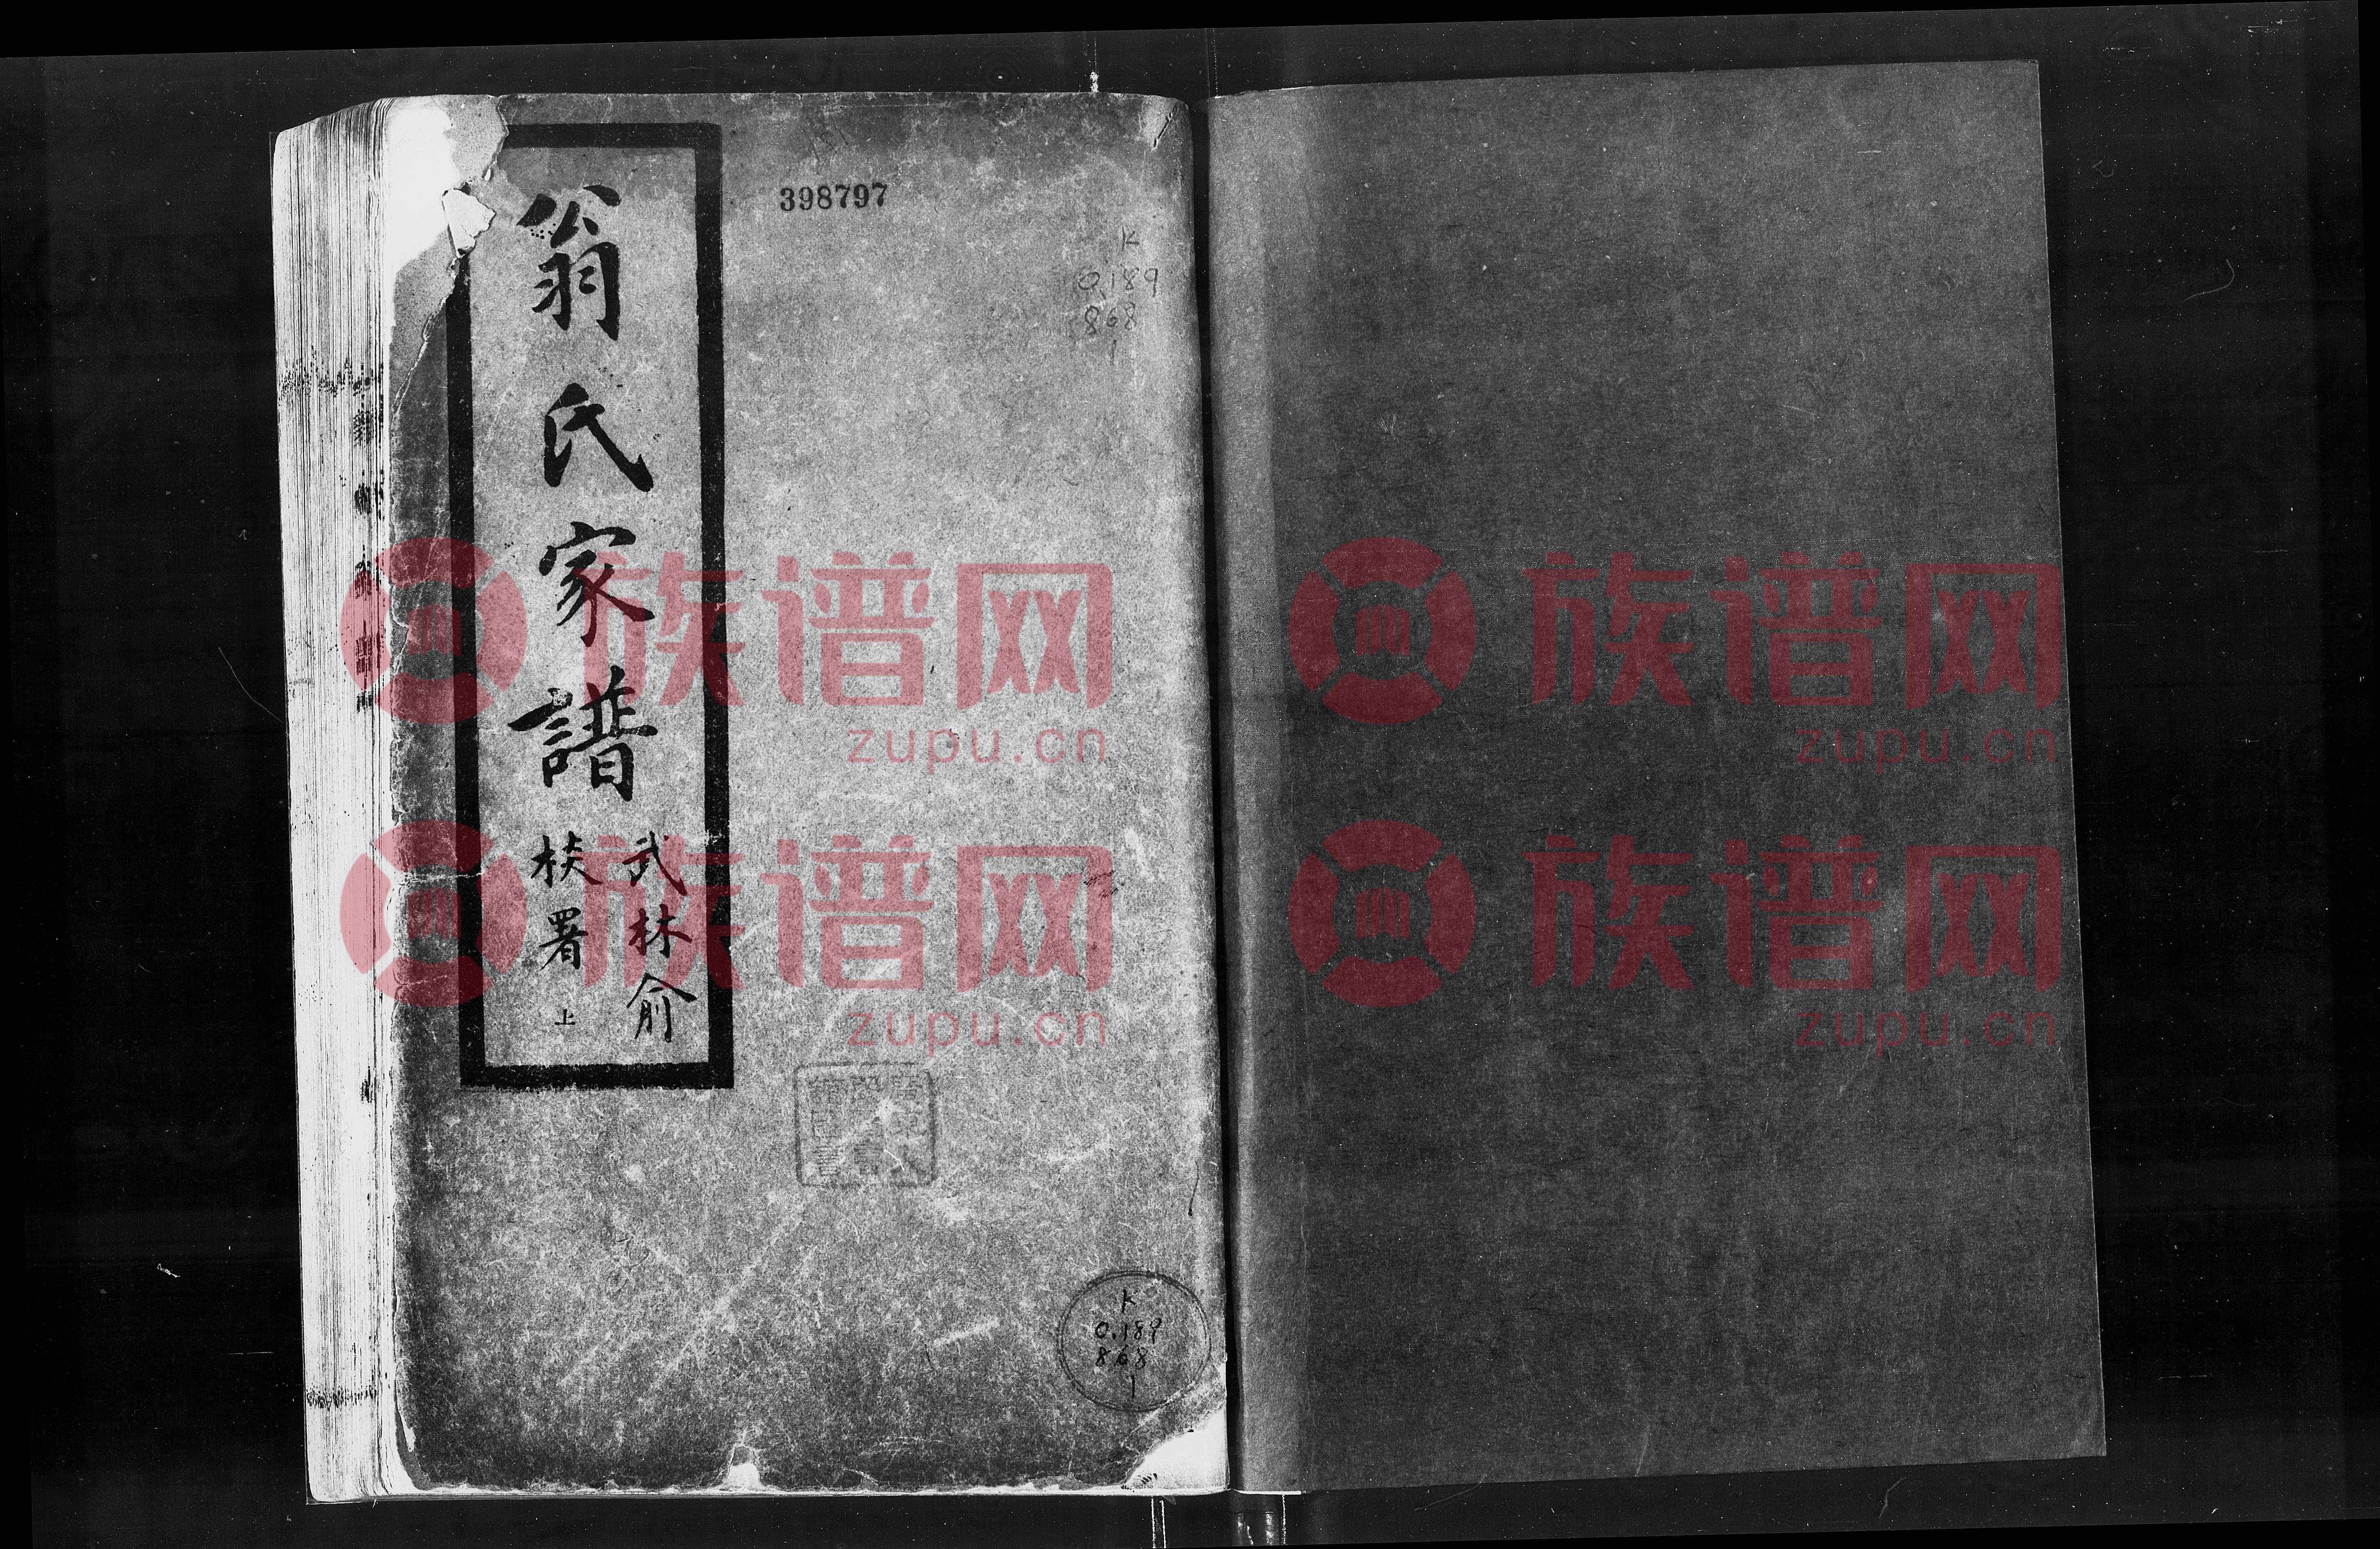 翁氏家譜
武林俞
棪署
上
398797
K
0.189
868
1
K
0.189
868
1
族谱网
zupu.cn
族谱网
zupu.cn
族谱网
zupu.cn
族谱网
zupu.cn